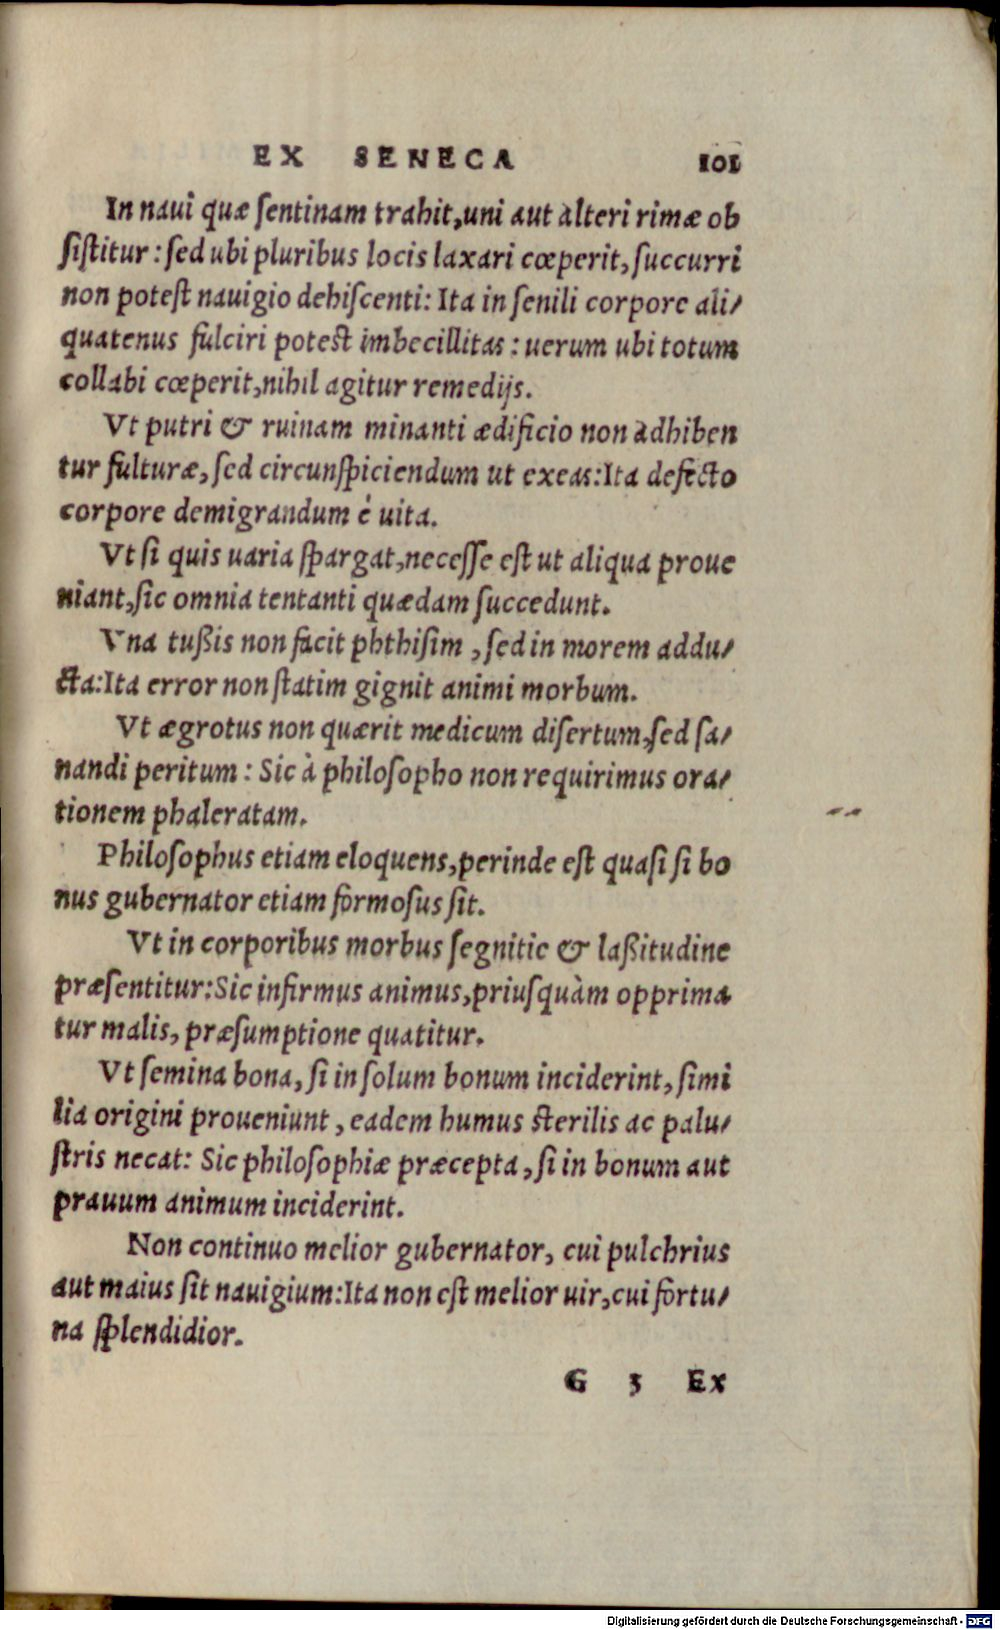 EX SENECA 101
In naui quæ ſentinam trahit, uni aut alteri rimæ ob
ſiſtitur: ſed ubi pluribus locis laxari cœperit, ſuccurri
non poteſt nauigio dehiſcenti: Ita in ſenili corpore ali⸗
quatenus fulciri poteſt imbecillitas: uerum ubi totum
collabi cœperit, nihil agitur remedijs.
Vt putri & ruinam minanti ædificio non adhiben
tur fulturæ, ſed circunſpiciendum ut exeas: Ita defecto
corpore demigrandum è uita.
Vt ſi quis uaria ſpargat, neceſſe eſt ut aliqua proue
niant, ſic omnia tentanti quædam ſuccedunt.
Vna tußis non facit phthiſim, ſed in morem addu⸗
cta: Ita error non ſtatim gignit animi morbum.
Vt ægrotus non quærit medicum diſertum, ſed ſa⸗
nandi peritum: Sic à philoſopho non requirimus ora⸗
tionem phaleratam.
Philoſophus etiam eloquens, perinde eſt quaſi ſi bo
nus gubernator etiam formoſus ſit.
Vt in corporibus morbus ſegnitie & laßitudine
præſentitur: Sic infirmus animus, priuſquàm opprima
tur malis, præſumptione quatitur.
Vt ſemina bona, ſi in ſolum bonum inciderint, ſimi
lia origini proueniunt, eadem humus ſterilis ac palu⸗
ſtris necat: Sic philoſophiæ præcepta, ſi in bonum aut
prauum animum inciderint.
Non continuo melior gubernator, cui pulchrius
aut maius ſit nauigium: Ita non eſt melior uir, cui fortu⸗
na ſplendidior.
G 3 Ex
Digitalisierung gefördert durch die Deutsche Forschungsgemeinschaft - DFG